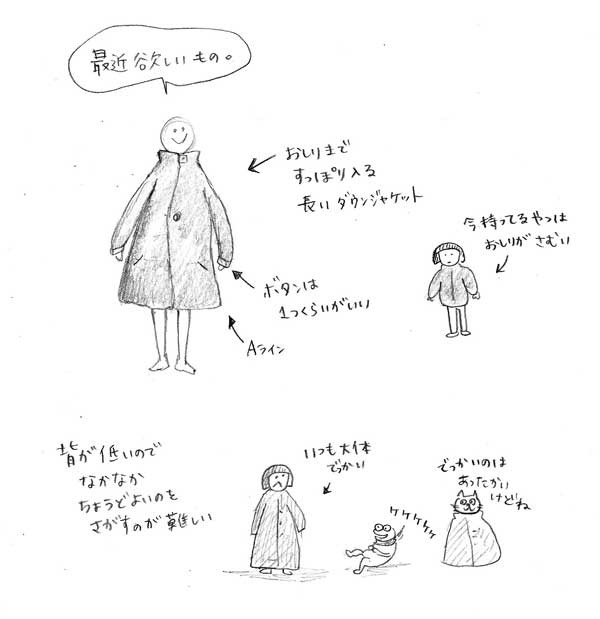 最近欲しいもの。
おしりまで
すっぽり入る
長いダウンジャケット
今持ってるやつは
おしりがさむい
ボタンは
1つくらいがいい
Aライン
背が低いので
なかなか
ちょうどよいのを
さがすのが難しい
いつも大体
でっかい
ケケケケケ
でっかいのは
あったかい
けどね